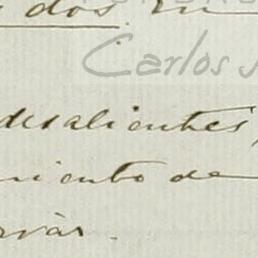 dos. En
Carlos
desalientes,
miento de